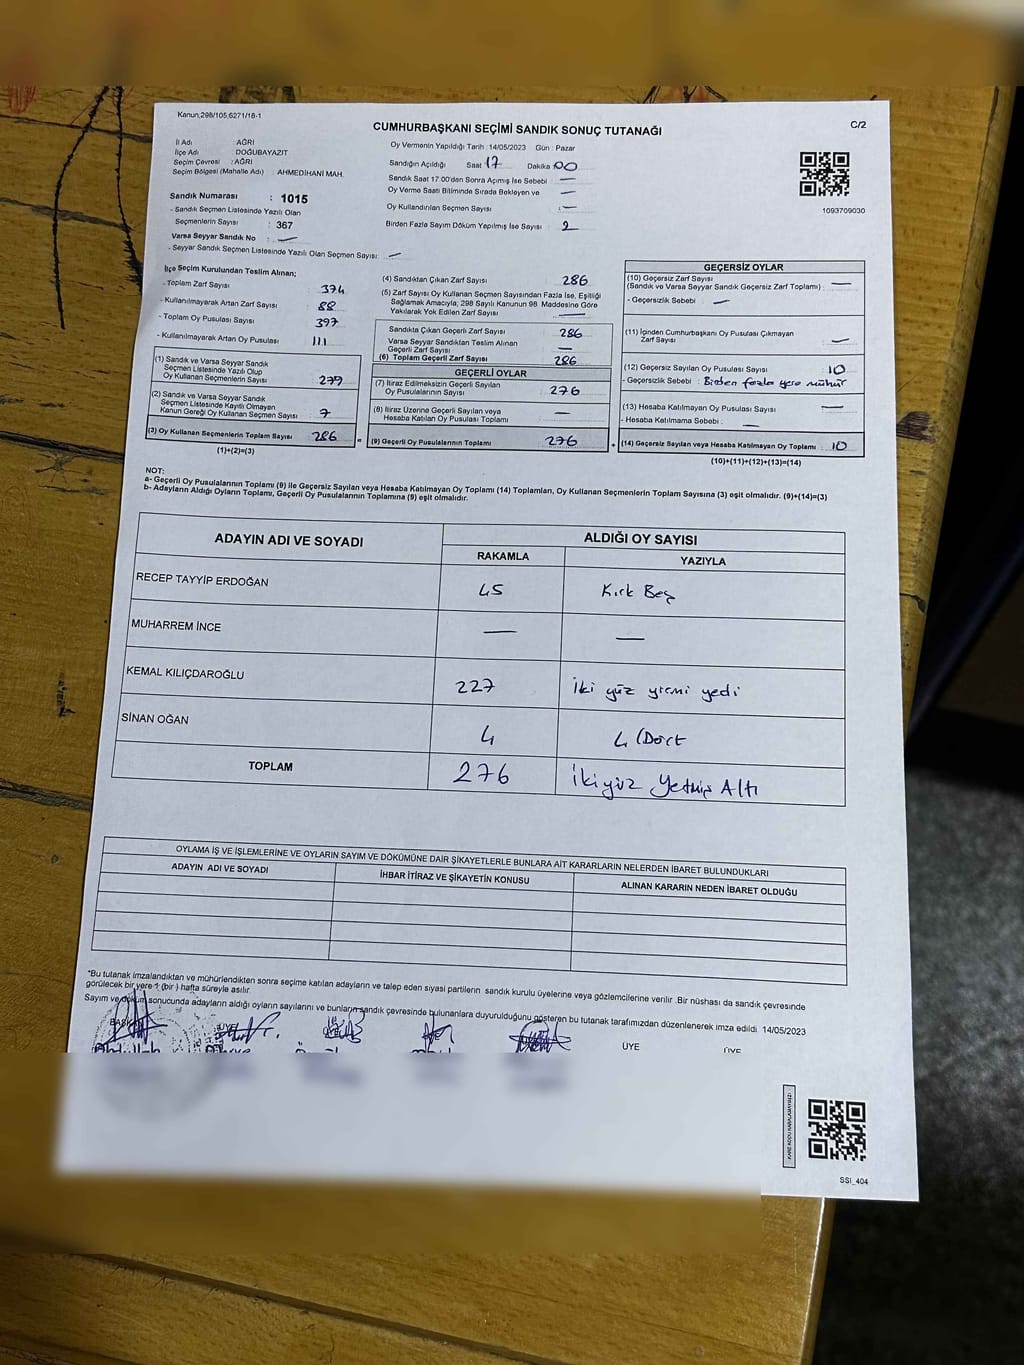 Kanun;298/105,6271/18-1
C/2
CUMHURBAŞKANI SEÇİMİ SANDIK SONUÇ TUTANAĞI
İl Adı : AĞRI
İlçe Adı : DOĞUBAYAZIT
Seçim Çevresi : AĞRI
Seçim Bölgesi (Mahalle Adı) : AHMEDİHANİ MAH.
Sandık Numarası : 1015
- Sandık Seçmen Listesinde Yazılı Olan
Seçmenlerin Sayısı : 367
Varsa Seyyar Sandık No : —
- Seyyar Sandık Seçmen Listesinde Yazılı Olan Seçmen Sayısı : —
Oy Vermenin Yapıldığı Tarih : 14/05/2023 Gün : Pazar
Sandığın Açıldığı Saat : 17 Dakika : 00
Sandık Saat 17.00'den Sonra Açımış İse Sebebi : —
Oy Verme Saati Bitiminde Sırada Bekleyen ve —
Oy Kullandırılan Seçmen Sayısı : —
Birden Fazla Sayım Döküm Yapılmış İse Sayısı : 2
1093709030
İlçe Seçim Kurulundan Teslim Alınan;
- Toplam Zarf Sayısı : 374
- Kullanılmayarak Artan Zarf Sayısı : 88
- Toplam Oy Pusulası Sayısı : 397
- Kullanılmayarak Artan Oy Pusulası : 111
(1) Sandık ve Varsa Seyyar Sandık
Seçmen Listesinde Yazılı Olup
Oy Kullanan Seçmenlerin Sayısı : 279
(2) Sandık ve Varsa Seyyar Sandık
Seçmen Listesinde Kayıtlı Olmayan
Kanun Gereği Oy Kullanan Seçmen Sayısı : 7
(3) Oy Kullanan Seçmenlerin Toplam Sayısı : 286
(1)+(2)=(3)
(4) Sandıktan Çıkan Zarf Sayısı : 286
(5) Zarf Sayısı Oy Kullanan Seçmen Sayısından Fazla İse, Eşitliği
Sağlamak Amacıyla; 298 Sayılı Kanunun 98. Maddesine Göre
Yakılarak Yok Edilen Zarf Sayısı : —
Sandıkta Çıkan Geçerli Zarf Sayısı : 286
Varsa Seyyar Sandıktan Teslim Alınan
Geçerli Zarf Sayısı : —
(6) Toplam Geçerli Zarf Sayısı : 286
GEÇERLİ OYLAR
(7) İtiraz Edilmeksizin Geçerli Sayılan
Oy Pusulalarının Sayısı : 276
(8) İtiraz Üzerine Geçerli Sayılan veya
Hesaba Katılan Oy Pusulası Toplamı : —
= (9) Geçerli Oy Pusulalarının Toplamı : 276
GEÇERSİZ OYLAR
(10) Geçersiz Zarf Sayısı
(Sandık ve Varsa Seyyar Sandık Geçersiz Zarf Toplamı) : —
- Geçersizlik Sebebi : —
(11) İçinden Cumhurbaşkanı Oy Pusulası Çıkmayan
Zarf Sayısı : —
(12) Geçersiz Sayılan Oy Pusulası Sayısı : 10
- Geçersizlik Sebebi : Birden fazla yere mühür
(13) Hesaba Katılmayan Oy Pusulası Sayısı : —
- Hesaba Katılmama Sebebi : —
+ (14) Geçersiz Sayılan veya Hesaba Katılmayan Oy Toplamı : 10
(10)+(11)+(12)+(13)=(14)
NOT:
a- Geçerli Oy Pusulalarının Toplamı (9) ile Geçersiz Sayılan veya Hesaba Katılmayan Oy Toplamı (14) Toplamları, Oy Kullanan Seçmenlerin Toplam Sayısına (3) eşit olmalıdır. (9)+(14)=(3)
b- Adayların Aldığı Oyların Toplamı, Geçerli Oy Pusulalarının Toplamına (9) eşit olmalıdır.
ADAYIN ADI VE SOYADI ALDIĞI OY SAYISI
RAKAMLA YAZIYLA
RECEP TAYYİP ERDOĞAN 45 Kırk Beş
MUHARREM İNCE — —
KEMAL KILIÇDAROĞLU 227 İki yüz yirmi yedi
SİNAN OĞAN 4 4 (Dört
TOPLAM 276 İkiyüz Yetmiş Altı
OYLAMA İŞ VE İŞLEMLERİNE VE OYLARIN SAYIM VE DÖKÜMÜNE DAİR ŞİKAYETLERLE BUNLARA AİT KARARLARIN NELERDEN İBARET BULUNDUKLARI
ADAYIN ADI VE SOYADI İHBAR İTİRAZ VE ŞİKAYETİN KONUSU ALINAN KARARIN NEDEN İBARET OLDUĞU
*Bu tutanak imzalandıktan ve mühürlendikten sonra seçime katılan adayların ve talep eden siyasi partilerin sandık kurulu üyelerine veya gözlemcilerine verilir .Bir nüshası da sandık çevresinde
görülecek bir yere 1 (bir ) hafta süreyle asılır.
Sayım ve döküm sonucunda adayların aldığı oyların sayılarını ve bunların sandık çevresinde bulunanlara duyurulduğunu gösteren bu tutanak tarafımızdan düzenlenerek imza edildi. 14/05/2023
ÜYE ÜYE ÜYE
SSI_404